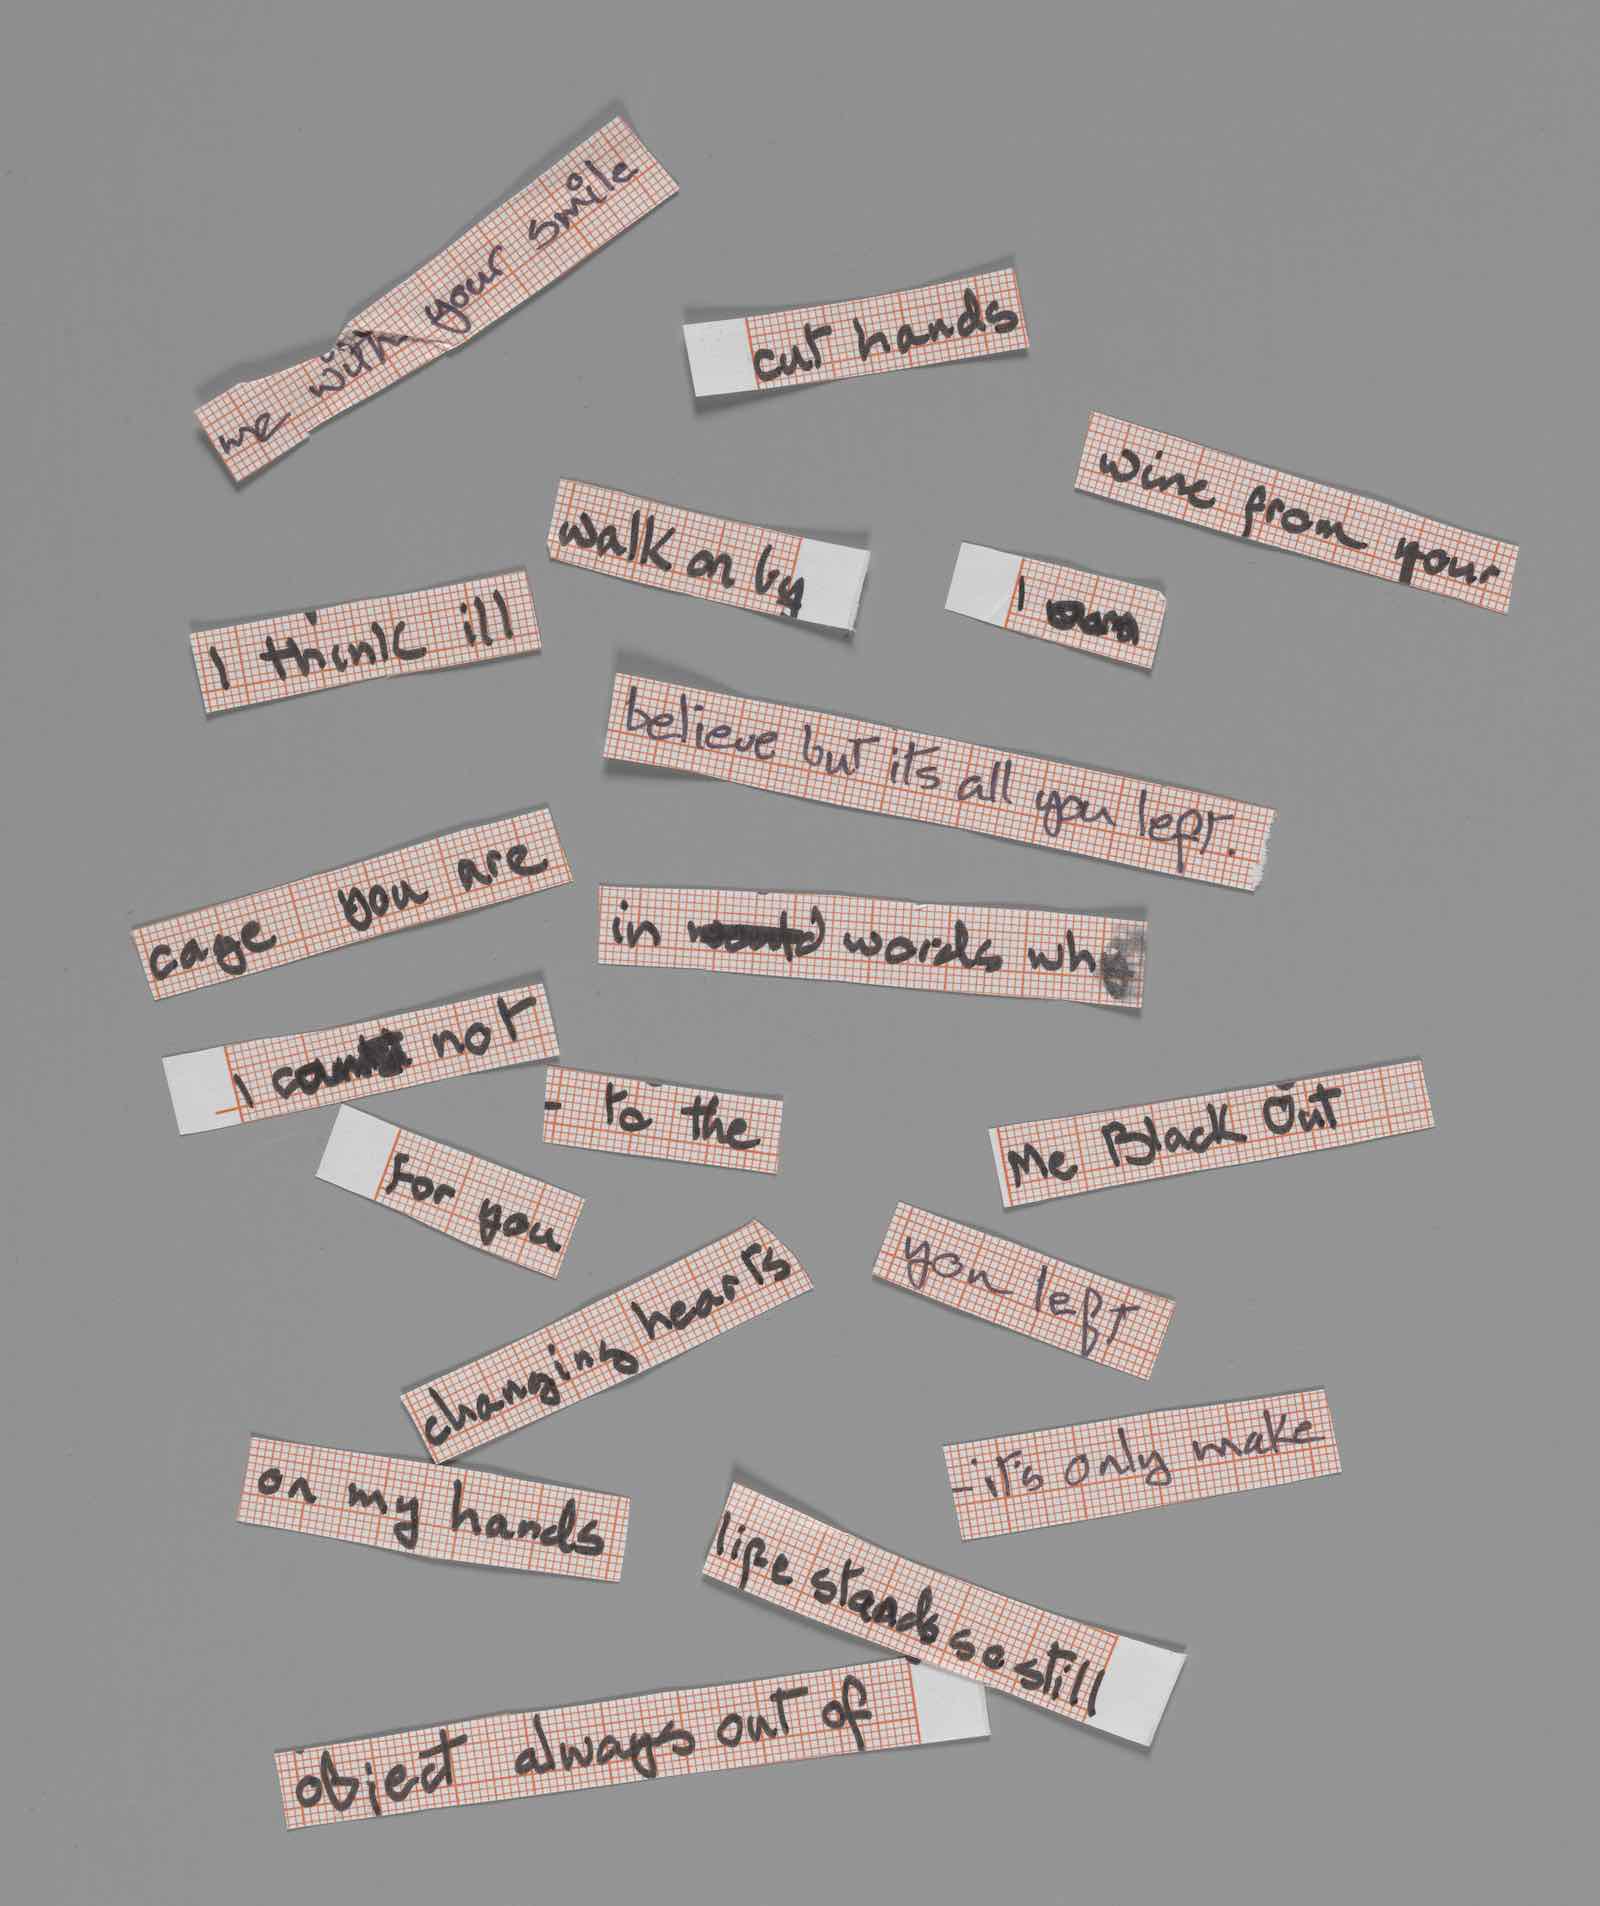 me with your smile
cut hands
wine from your
walk on by
I
I think ill
believe but its all you left.
cage you are
in words wh
I not
to the
Me Black Out
for you
you left
changing hearts
- it's only make
on my hands
life stands so still
object always out of